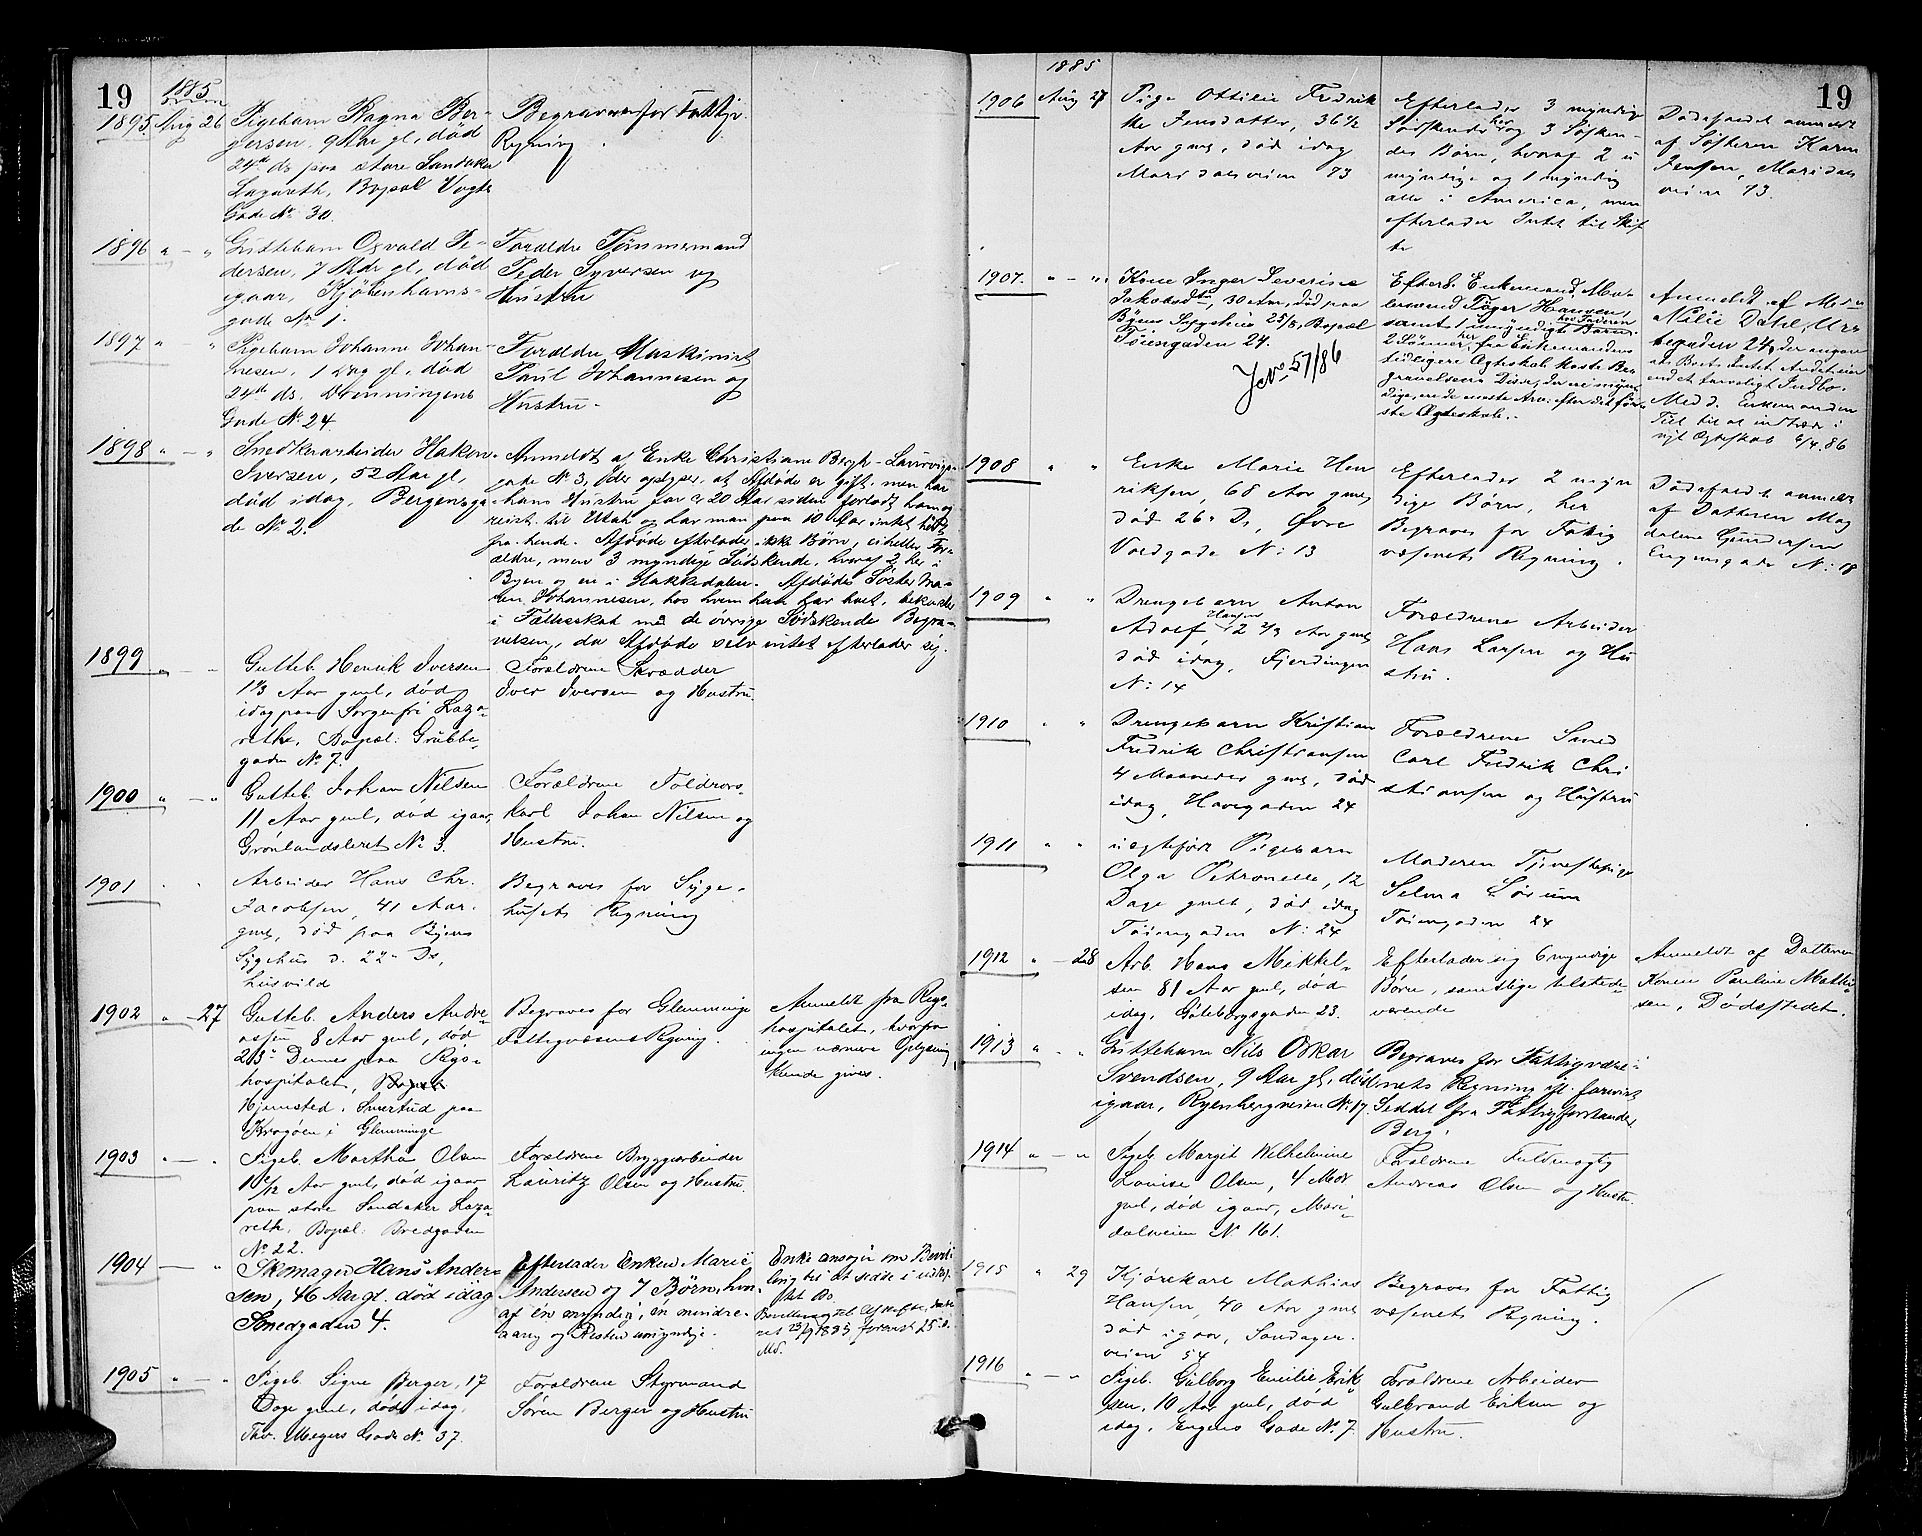 19
1885
1895. Aug 26
Pigebarn Ragna Ber-
gersen, 9 Aar gl, død
24de ds paa store Sandaker
Lazareth, Bopæl Vogts
Gade No 30.
Begraves for Fattigv.
Regning.
1896 " — "
Guttebarn Osvald Pe-
dersen, 7 Mdr gl, død
igaar, Kjøbenhavns-
gade No 1.
Forældre Tømmermand
Peder Syversen og
Hustru
1897 " "
Pigebarn Johanne Johan-
nesen, 1 Dag gl, død
24de ds. Dronningens
Gade No 24.
Forældre Maskinist
Paul Johannesen og
Hustru.
1898 " — "
Snedkerarbeider Hakon
Iversen, 52 Aar gl,
død idag, Bergensga
de No 2.
Anmeldt af Enke Christiane Bergh - Laurvigs-
gade No 3, der oplyser, at Afdøde er gift, men har
hans Hustru for c 20 Aar siden forladt ham og
reist til Utah og har man paa 10 Aar intet hørt
fra hende. Afdøde efterlader ikke Børn, eiheller For-
ældre, men 3 myndige Sødskende, hvoraf 2 her i
Byen og en i Hakkedalen. Afdødes Søster Ma-
ren Johannesen, hos hvem han har boet, bekoster
i Fællesskab med de øvrige Sødskende Begra-
velsen, da Afdøde selv intet efterlader sig.
1899 " —
Gutteb. Henrik Iversen
1 1/3 Aar gml, død
idag paa Sorgenfri Laza-
reth, Bopæl: Grübbe-
gaden No 7.
Forældrene Skrædder
Iver Iversen og Hustru.
1900 " — "
Gutteb. Johan Nilsen
11 Aar gml, død igaar,
Grønlandsleret No 3.
Forældrene Toldrors-
karl Johan Nilsen og
Hustru.
1901 " "
Arbeider Hans Chr.
Jacobsen, 41 Aar
gml, død paa Byens
Sygehus d. 22de Ds,
Begraves for Syge-
husets Regning
1902 " — 27
Gutteb. Anders Andre-
assen 8 Aar gml, død
23de Dennes paa Rigs-
hospitalet,
Hjemsted: Svertud paa
Kragøen i Glemminge
Begraves for Glemminge
Fattigvæsens Regning.
Anmeldt fra Rigs-
hospitalet, hvorfra
ingen nærmere Oplysning
kunde gives.
1903 " — "
Pigeb. Martha Olsen
Aar gml, død igaar
paa store Sandaker Laza-
reth, Bopæl: Bredgaden
No 22.
Forældrene Bryggearbeider
Lauritz Olsen og Hustru.
1904 — "
Skomager Hans Ander-
sen, 46 Aar gl. død idag
Smedgaden 4.
Efterlader Enken Marie
Andersen og 7 Børn, hvor-
af én myndig, én mindre-
aarig og Resten umyndige.
Enke ansøgt om Bevil-
ling til at sidde i uskif-
tet Bo.
1905 " — "
Pigeb. Signe Berger, 17
Dage gml, død idag,
Thv. Meyers Gade No 37.
Forældrene Styrmand
Søren Berger og Hustru
1885
19
1906 Aug 27
Pige Ottilie Fredrik
ke Jensdatter, 36 1/2
Aar gml, død idag
Maridalsveien 73
Efterlader 3 myndige
Søskende her og 3 Søsken-
des Børn, hvoraf 2 u
myndige og 1 myndig
alle i America, men
efterlader Intet til Skif
te
Dødsfaldet anmeldt
af Søsteren Karen
Jensen, Maridals
veien 73.
1907. " — "
Kone Inger Severine
Jakobsdtr, 30 Aar, død paa
Byens Sygehus 25/8, Bopæl
Tøiengaden 24.
J No 57/86
Efterl. Enkemand, Ma-
lersvend Tøger Hansen,
samt 1 umyndigt Barn hos Faderen.
2 Sønner her, fra Enkemandens
tidligere Ægteskab
ste Ægteskab.
Anmeldt af
Nilie Dahl, Urte
begaden 24, der angav
at Boets intet Andet eier
end et tarveligt Indbo.
Medd. Enkemanden
Till. til at indtræde i
nyt Ægteskab 6/4 86
1908 " "
Enke Marie Hen
riksen, 68 Aar gml,
død 26de Ds, Øvre
Voldgade No 13
Efterlader 2 myn
dige Børn, her
Begraves for Fattig
væsenets Regning.
Dødsfaldet anmeldt
af Datteren Mag
dalene Gundersen
Enggade No 18
1909 " "
Drengebarn Anton
Adolf Hansen, 2 2/3 Aar gml,
død idag, Fjerdingen
No 14
Forældrene Arbeider
Hans Larsen og Hu
stru.
1910 " "
Drengebarn Kristian
Fredrik Christiansen
4 Maaneder gml, død
idag, Havegaden 24
Forældrene Smed
Carl Fredrik Chri
stiansen og Hustru
1911 " "
uægtefødt Pigebarn
Olga Petronelle, 12
Dage gml, død idag
Tøiengaden No 24
Moderen Tjenestepige
Selma Sørum
Tøiengaden 24
1912 " — 28
Arb. Hans Mikkel-
sen 81 Aar gml, død
idag, Gøteborgsgaden 23.
Efterlader sig 6 myndige
Børn, samtlige tilstede-
værende
Anmeldt af Datteren
Konen Pauline Mathi-
sen, Dødsstedet.
1913 " "
Guttebarn Nils Oskar
Svendsen, 9 Aar gl, død
igaar, Ryenbergveien No 17.
Begraves for Fattigvæse-
nets Regning ifl. forevist
Seddel fra Fattigforstander
Berg.
1914 " — "
Pigeb. Margit Wilhelmine
Louise Olsen, 4 Mdr
gml, død igaar, Mari-
dalsveien No 161.
Forældrene Fuldmægtig
Andreas Olsen og Hustru.
1915 " 29
Kjørekarl Mathias
Hansen, 40 Aar gml
død igaar, Sandager-
veien 54
Begraves for Fattig
væsenets Regning.
1916 " — "
Pigeb. Gulborg Emilie Erik
sen, 10 Aar gml, død
idag, Engens Gade No 7.
Forældrene Arbeider
Gulbrand Eriksen og
Hustru.